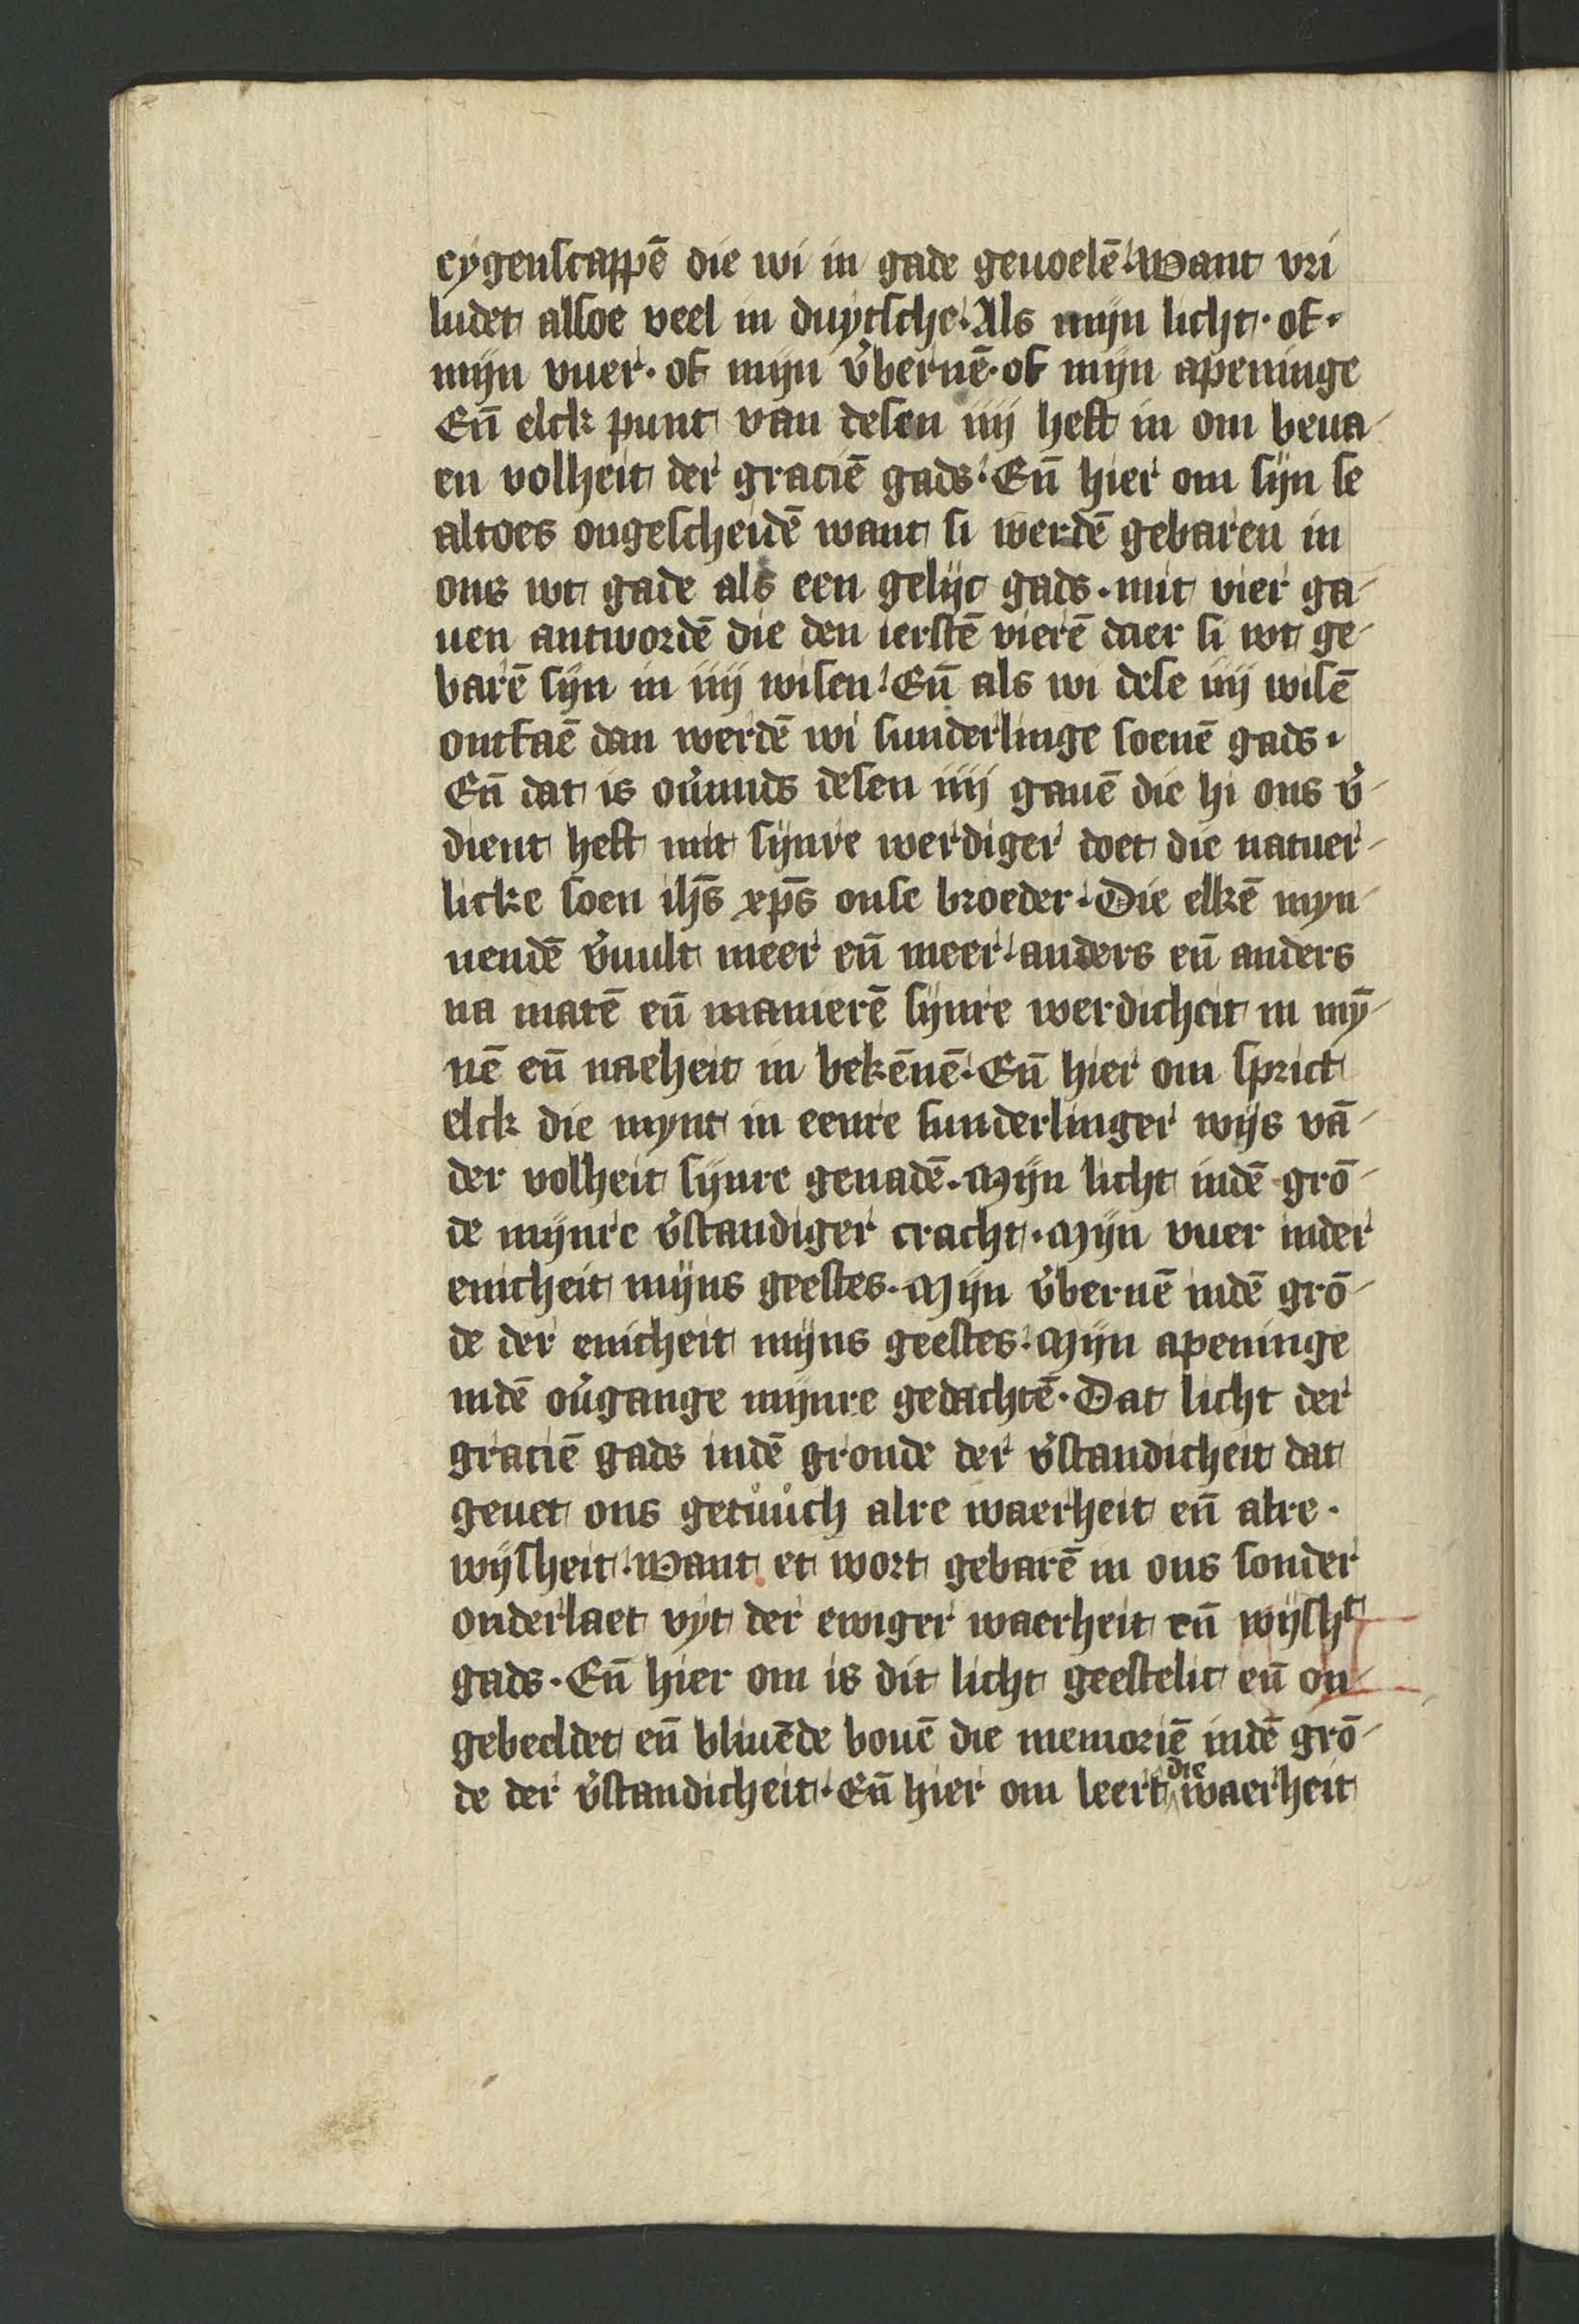 eygenscappē die wi in gade geuoelē. Want vri
ludet alsoe veel in duytsche. Als mijn licht. of.
mijn vuer. of mijn v̓bernē. of mijn apeninge
Eñ elck punt van desen iiij heft in om beua-
en volheit der graciē gads. Eñ hier om sijn se
altoes ongescheidē want si werdē gebaren in
ons wt gade als een gelijc gads. mit vier ga-
uen antwordē die den ierstē vierē daer si wt ge-
barē sijn in iiij wisen. Eñ als wi dese iiij wisē
ontfaē dan werdē wi sunderlinge soenē gads.
Eñ dat is ou̓mids desen iiij gauē die hi ons v̓-
dient heft mit sijnre werdiger doet die natuer-
licke soen ihs̄ xps̄ onse broeder. Die elkē myn-
nendē v̓uult meer eñ meer. anders eñ anders
na matē eñ manierē sijnre werdicheit in mȳ-
nē eñ naeheit in bekēnē. Eñ hier om sprict
elck die mynt in eenre sunderlinger wijs vā-
der volheit sijnre genadē. Mijn licht indē grō-
de mijnre v̓standiger cracht. Mijn vuer inder
enicheit mijns geestes. Mijn v̓bernē indē grō-
de der enicheit mijns geestes. Mijn apeninge
indē ou̓gange mijnre gedachtē. Dat licht der
graciē gads indē gronde der v̓standicheit dat
geuet ons getůůch alre waerheit eñ alre.
wijsheit. Want et wort gebarē in ons sonder
onderlaet vyt der ewiger waerheit eñ wijshᵗ
gads. Eñ hier om is dit licht geestelic eñ on-
gebeeldet eñ bliuēde bouē die memoriē indē grō-
de der v̓standicheit. Eñ hier om leert die waerheit